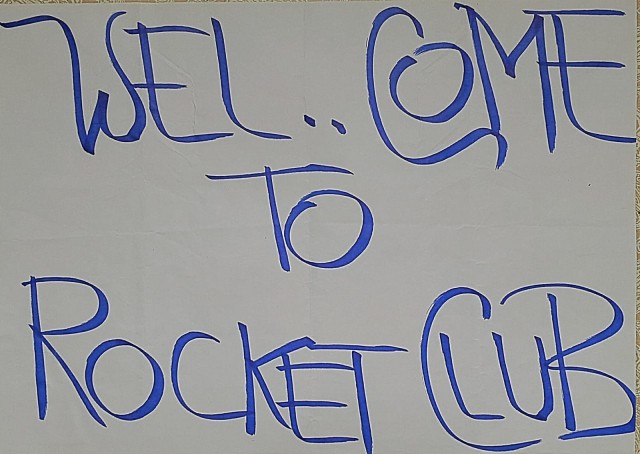 WEL..COME
TO
ROCKET CLUB